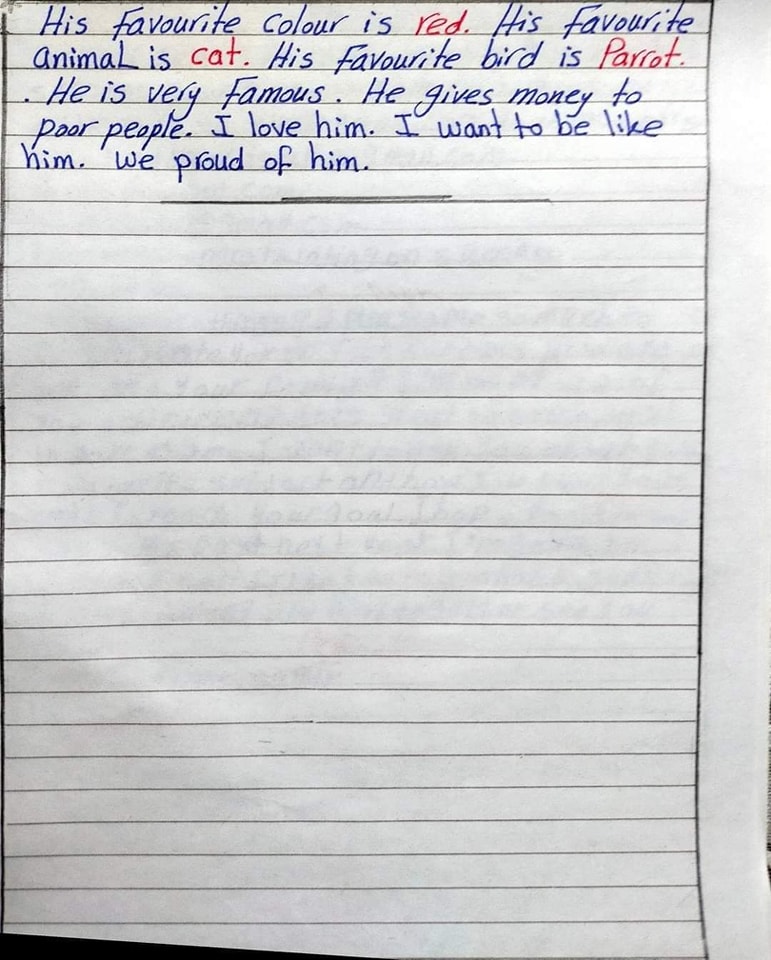 His favourite colour is red. His favourite
animal is cat. His favourite bird is Parrot.
. He is very famous. He gives money to
poor people. I love him. I want to be like
him. We proud of him.